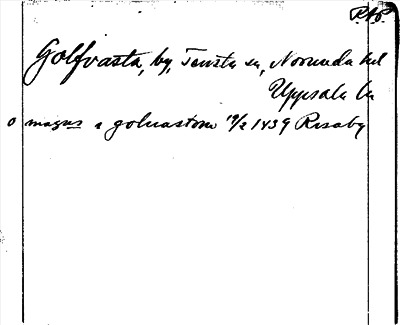 R.A.P.
Golfvasta, by, Tensta sn, Norunda hd
Uppsala län
o magnus i goluastom 19/2 1439 Risaby